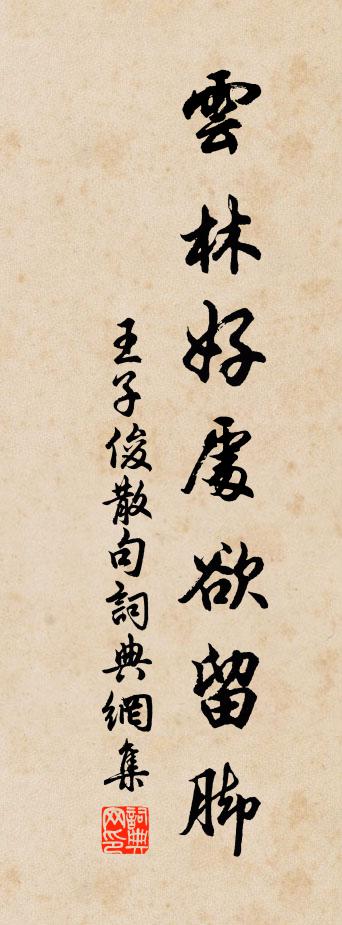 雲林好處欲留腳
王子俊散句詞典網集
詞典网印